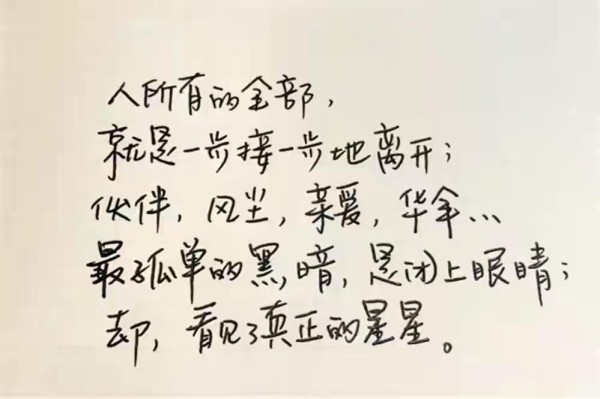 人所有的全部，
就是一步接一步地离开；
伙伴，风尘，亲爱，华伞…
最孤单的黑暗，是闭上眼睛；
却，看见了真正的星星。